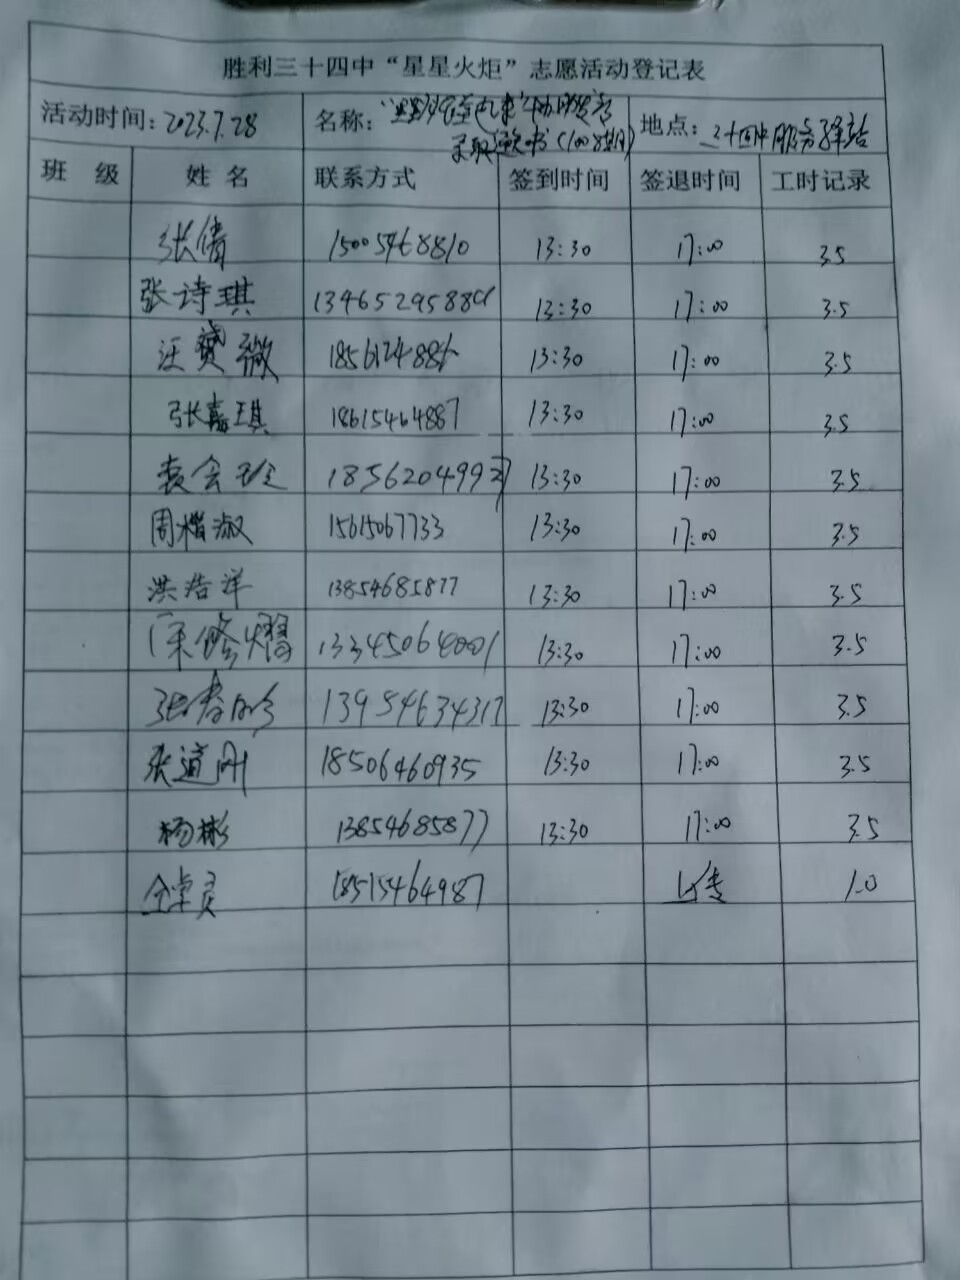 胜利三十四中“星星火炬”志愿活动登记表
活动时间：2023.7.28 名称： 地点：三十四中服务驿站
录取通知书(1008期)
班 级 姓 名 联系方式 签到时间 签退时间 工时记录
张倩 15005468810 13:30 17:00 3.5
张诗琪 13465295889 13:30 17:00 3.5
汪 薇 13:30 17:00 3.5
张嘉琪 18615464887 13:30 17:00 3.5
袁会珍 13:30 17:00 3.5
周 淑 15615067733 13:30 17:00 3.5
洪浩洋 13854685877 13:30 17:00 3.5
宋修熠 13345064001 13:30 17:00 3.5
张春 13954634317 13:30 17:00 3.5
张道刚 18506460935 13:30 17:00 3.5
杨彬 13854685877 13:30 17:00 3.5
18515464987 1.0